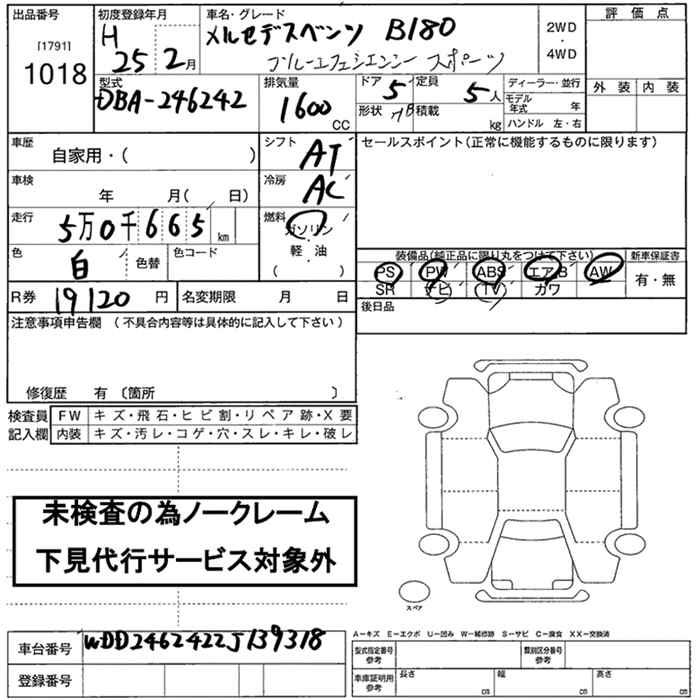 出品番号
[1791]
1018
初度登録年月
H 25 2月
車名・グレード
メルセデスベンツ B180
ブルーエフィシエンシー スポーツ
2WD
・
4WD
評価点
外装 内装
型式
DBA-246242
排気量
1600 CC
ドア 5
定員 5人
形状
積載 kg
ディーラー・並行
モデル年式 年
ハンドル 左・右
車歴
自家用・( )
シフト AT
セールスポイント(正常に機能するものに限ります)
車検
年 月( 日)
冷房 AC
走行
5万0千665km
燃料
ガソリン
軽・油
( )
色 白
色替
色コード
装備品(純正品に限り丸をつけて下さい)
新車保証書
PS PW ABS エアB AW
SR ナビ TV カワ
有・無
R券 19120円
名変期限 月 日
後日品
注意事項申告欄 (不具合内容等は具体的に記入して下さい)
修復歴 有〔箇所 〕
検査員記入欄
FW キズ・飛石・ヒビ割・リペア跡・X要
内装 キズ・汚レ・コゲ・穴・スレ・キレ・破レ
未検査の為ノークレーム
下見代行サービス対象外
スペア
A-キズ E-エクボ U-凹み W-補修跡 S-サビ C-腐食 XX-交換済
車台番号 WDD2462422J139318
登録番号
型式指定番号 参考
類別区分番号 参考
車庫証明用 参考
長さ cm 幅 cm 高さ cm